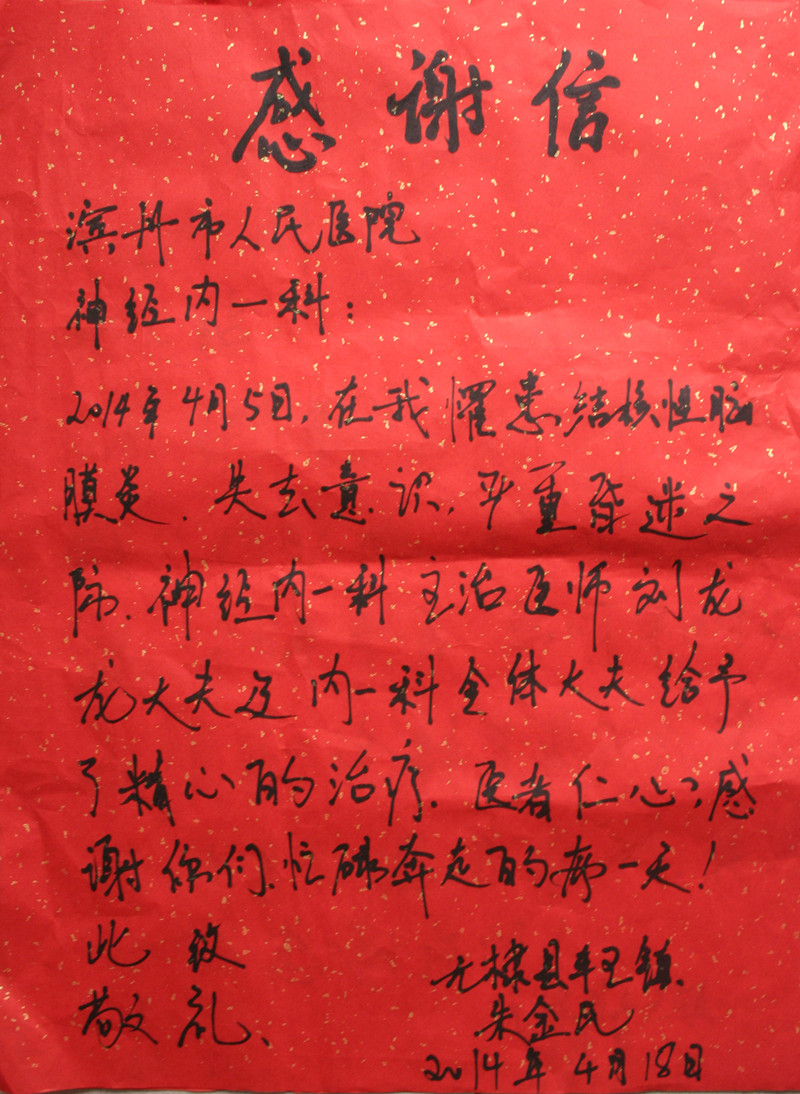 感谢信
滨州市人民医院
神经内一科：
2014年4月5日，在我罹患结核性脑
膜炎、失去意识，严重昏迷之
际、神经内一科主治医师刘龙
龙大夫及内一科全体大夫给予
了精心的治疗、医者仁心，感
谢你们、忙碌奔走的每一天！
此致
敬礼、
无棣县车王镇
朱金民
2014年4月18日